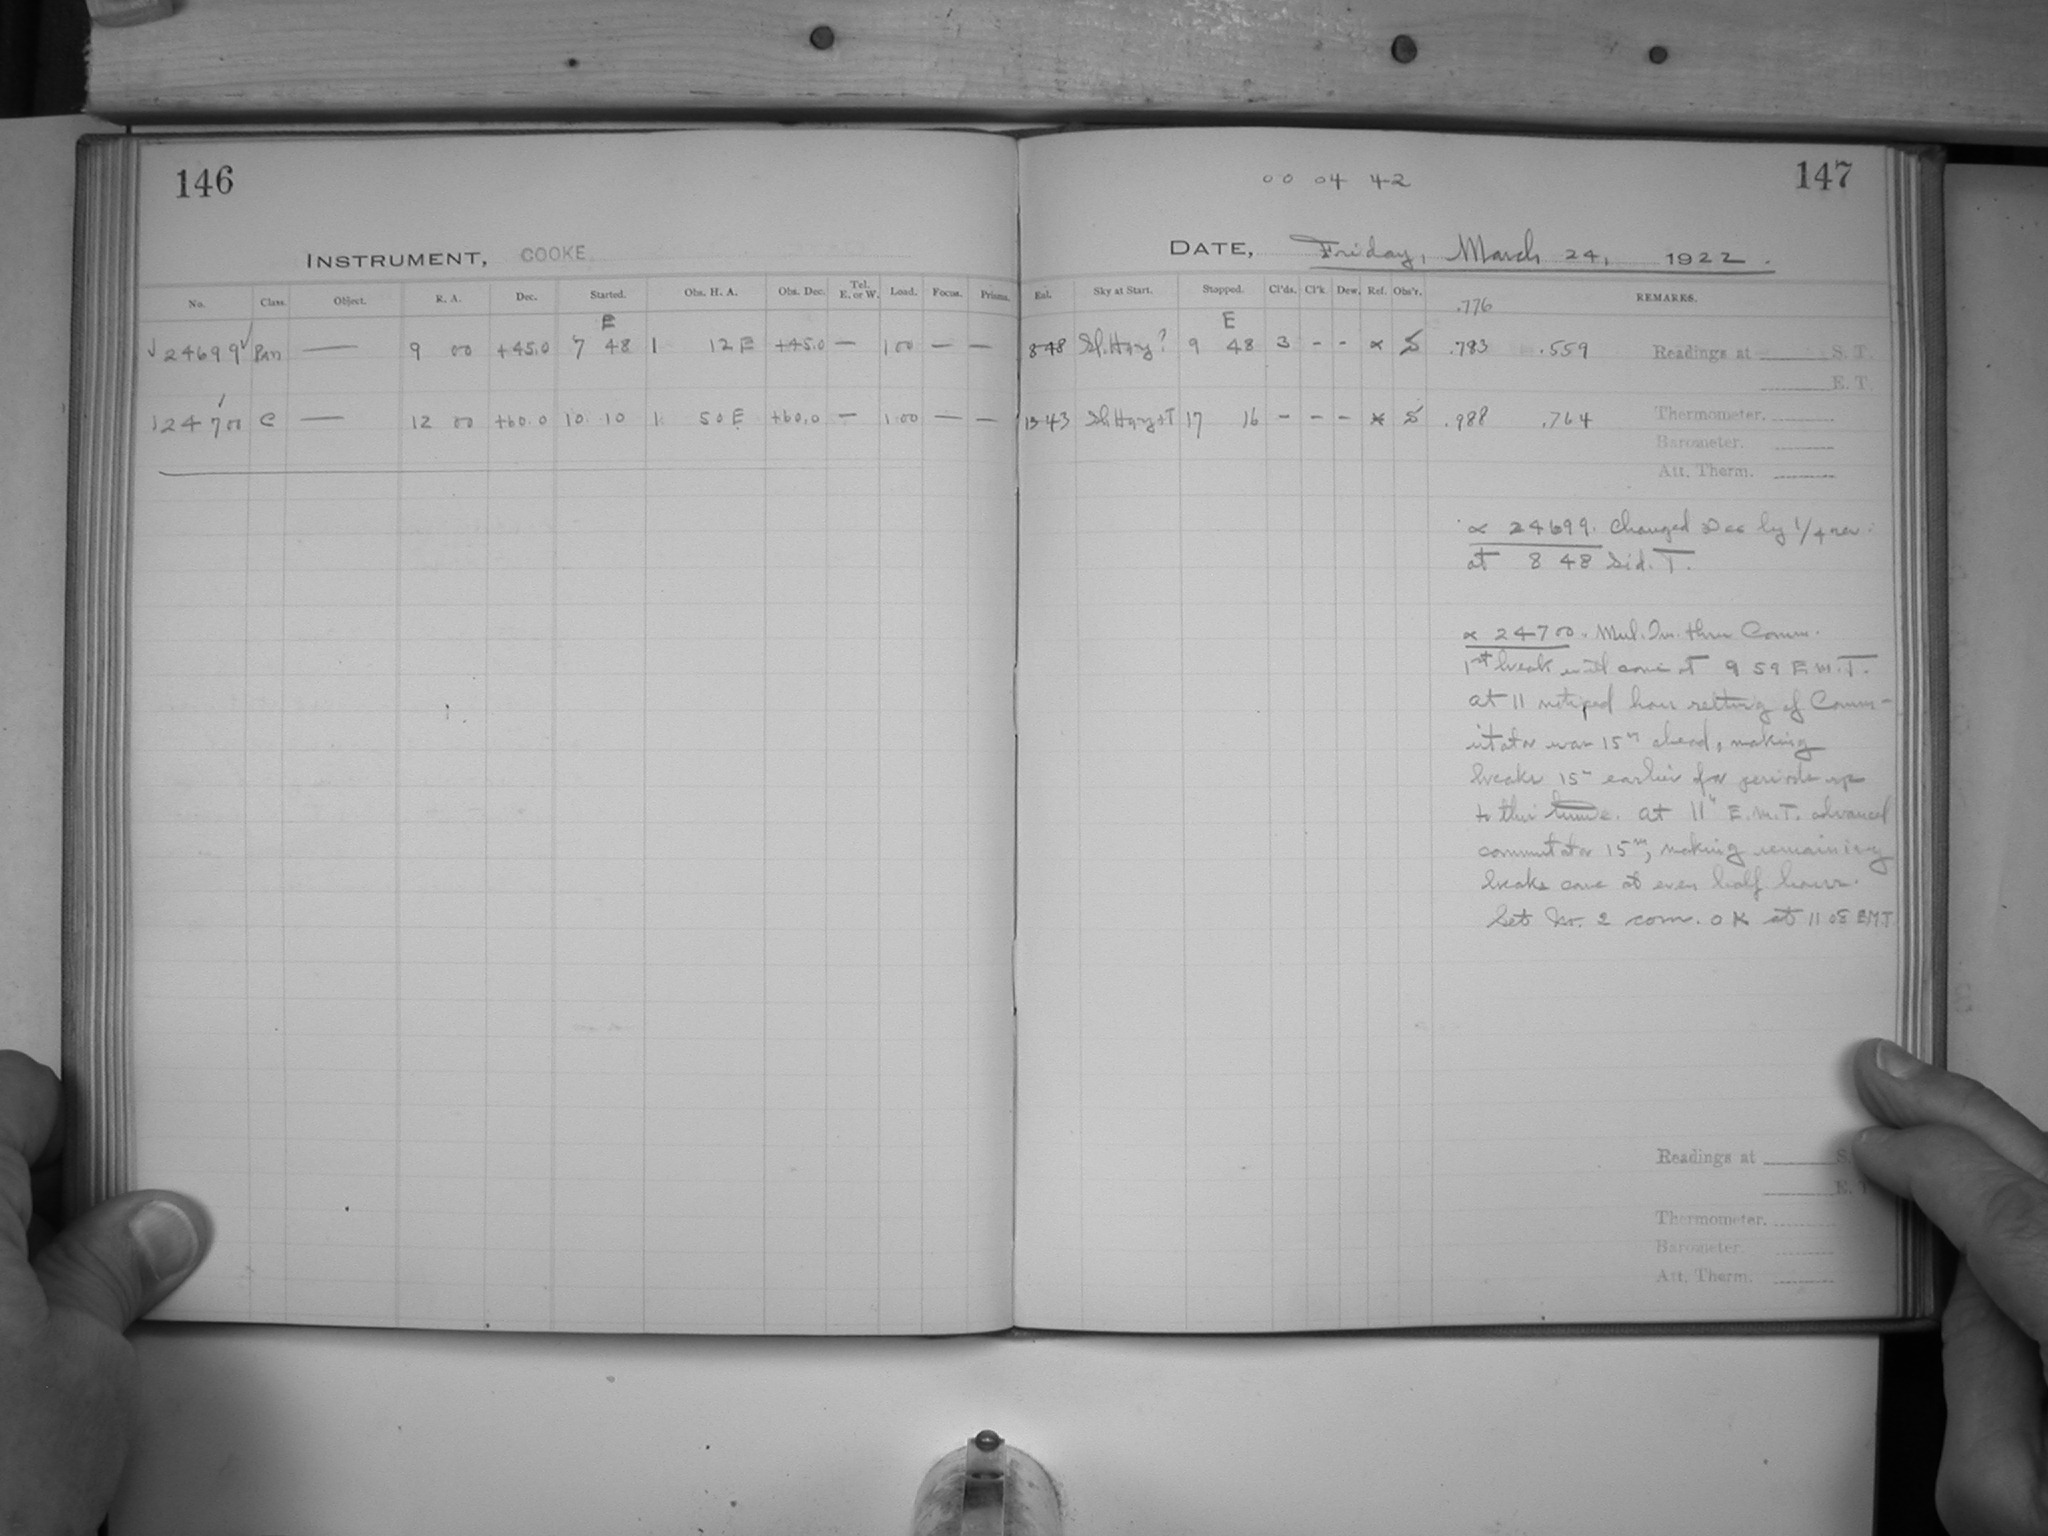 146
INSTRUMENT, COOKE
No. Class. Object. R. A. Dec. Started. Obs. H. A. Obs. Dec. Tel. E. or W. Load. Focus. Prisms.
E
24699 Pan — 9 00 +45.0 7 48 1 12 E +45.0 — 1.00 — —
24700 C — 12 00 +60.0 10 10 1 50 E +60.0 — 1.00 — —
147
00 04 42
DATE, Friday, March 24, 1922.
Sky at Start. Stopped. Cl'ds. Cl'k. Dew. Ref. Obs'r. REMARKS.
.776
E
8 48 Sl. Hazy? 9 48 3 - - α S .783 .559
13 43 Sl. Hazy+T 17 16 - - - S .988 .764
Readings at S. T.
E. T.
Thermometer.
Barometer.
Att. Therm.
α 24699. Changed Dec by 1/4 rev.
at 8 48 Sid. T.
α 24700. Mul. Im. thru Comm.
1st break until come at 9 59 E.M.T.
at 11 noticed hour setting of Comm-
utator was 15m ahead, making
breaks 15m earlier for periods up
to this time. At 11h E.M.T. advanced
commutator 15m, making remaining
breaks come at even half hours.
Set No. 2 com. OK at 11 08 EMT
Readings at S.
E. T
Thermometer.
Barometer.
Att. Therm.